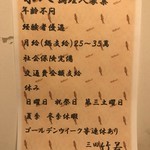 調理人募集
年齢不問
経験者優遇
月給(総支給)25~35萬
社会保険完備
交通費全額支給
休み
日曜日 祝祭日 第三土曜日
夏季 冬季休暇
ゴールデンウイーク等連休あり)
三田